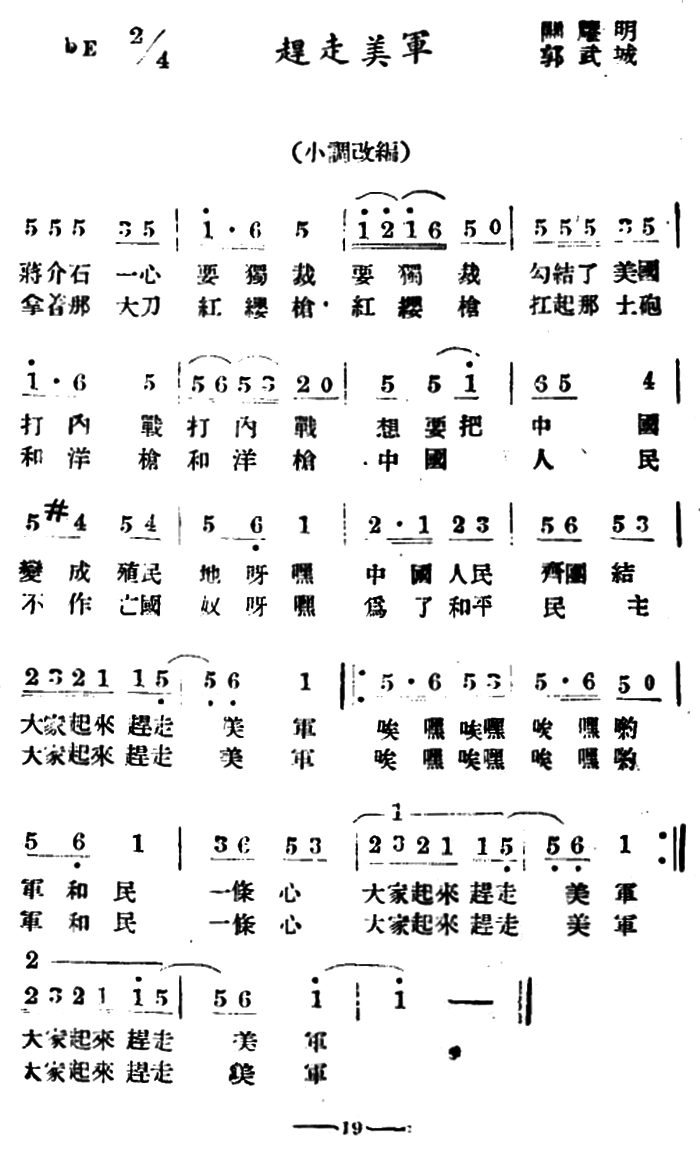 bE 2/4 趕走美軍 關耀明
郭武城
(小調改編)
5 5 5 35 | 1·6 5 | 1216 50 | 55 5 35 |
蔣介石一心要獨裁要獨裁勾結了美國
拿着那大刀紅纓槍紅纓槍扛起那土砲
1·6 5 | 5653 20 | 5 51 | 65 4
打內戰打內戰想要把中國
和洋槍和洋槍中國人民
5 #4 54 | 5 6 1 | 2·1 23 | 56 53 |
變成殖民地呀嘿中國人民齊團結
不作亡國奴呀嘿爲了和平民主
2321 15 | 56 1 |: 5·6 53 | 5·6 50 |
大家起來趕走美軍唉嘿唉嘿唉嘿喲
大家起來趕走美軍唉嘿唉嘿唉嘿喲
1
5 6 1 | 36 53 | 2321 15 | 56 1 :|
軍和民一條心大家起來趕走美軍
軍和民一條心大家起來趕走美軍
2
2321 15 | 56 1 | 1 — ||
大家起來趕走美軍
大家起來趕走美軍
—19—